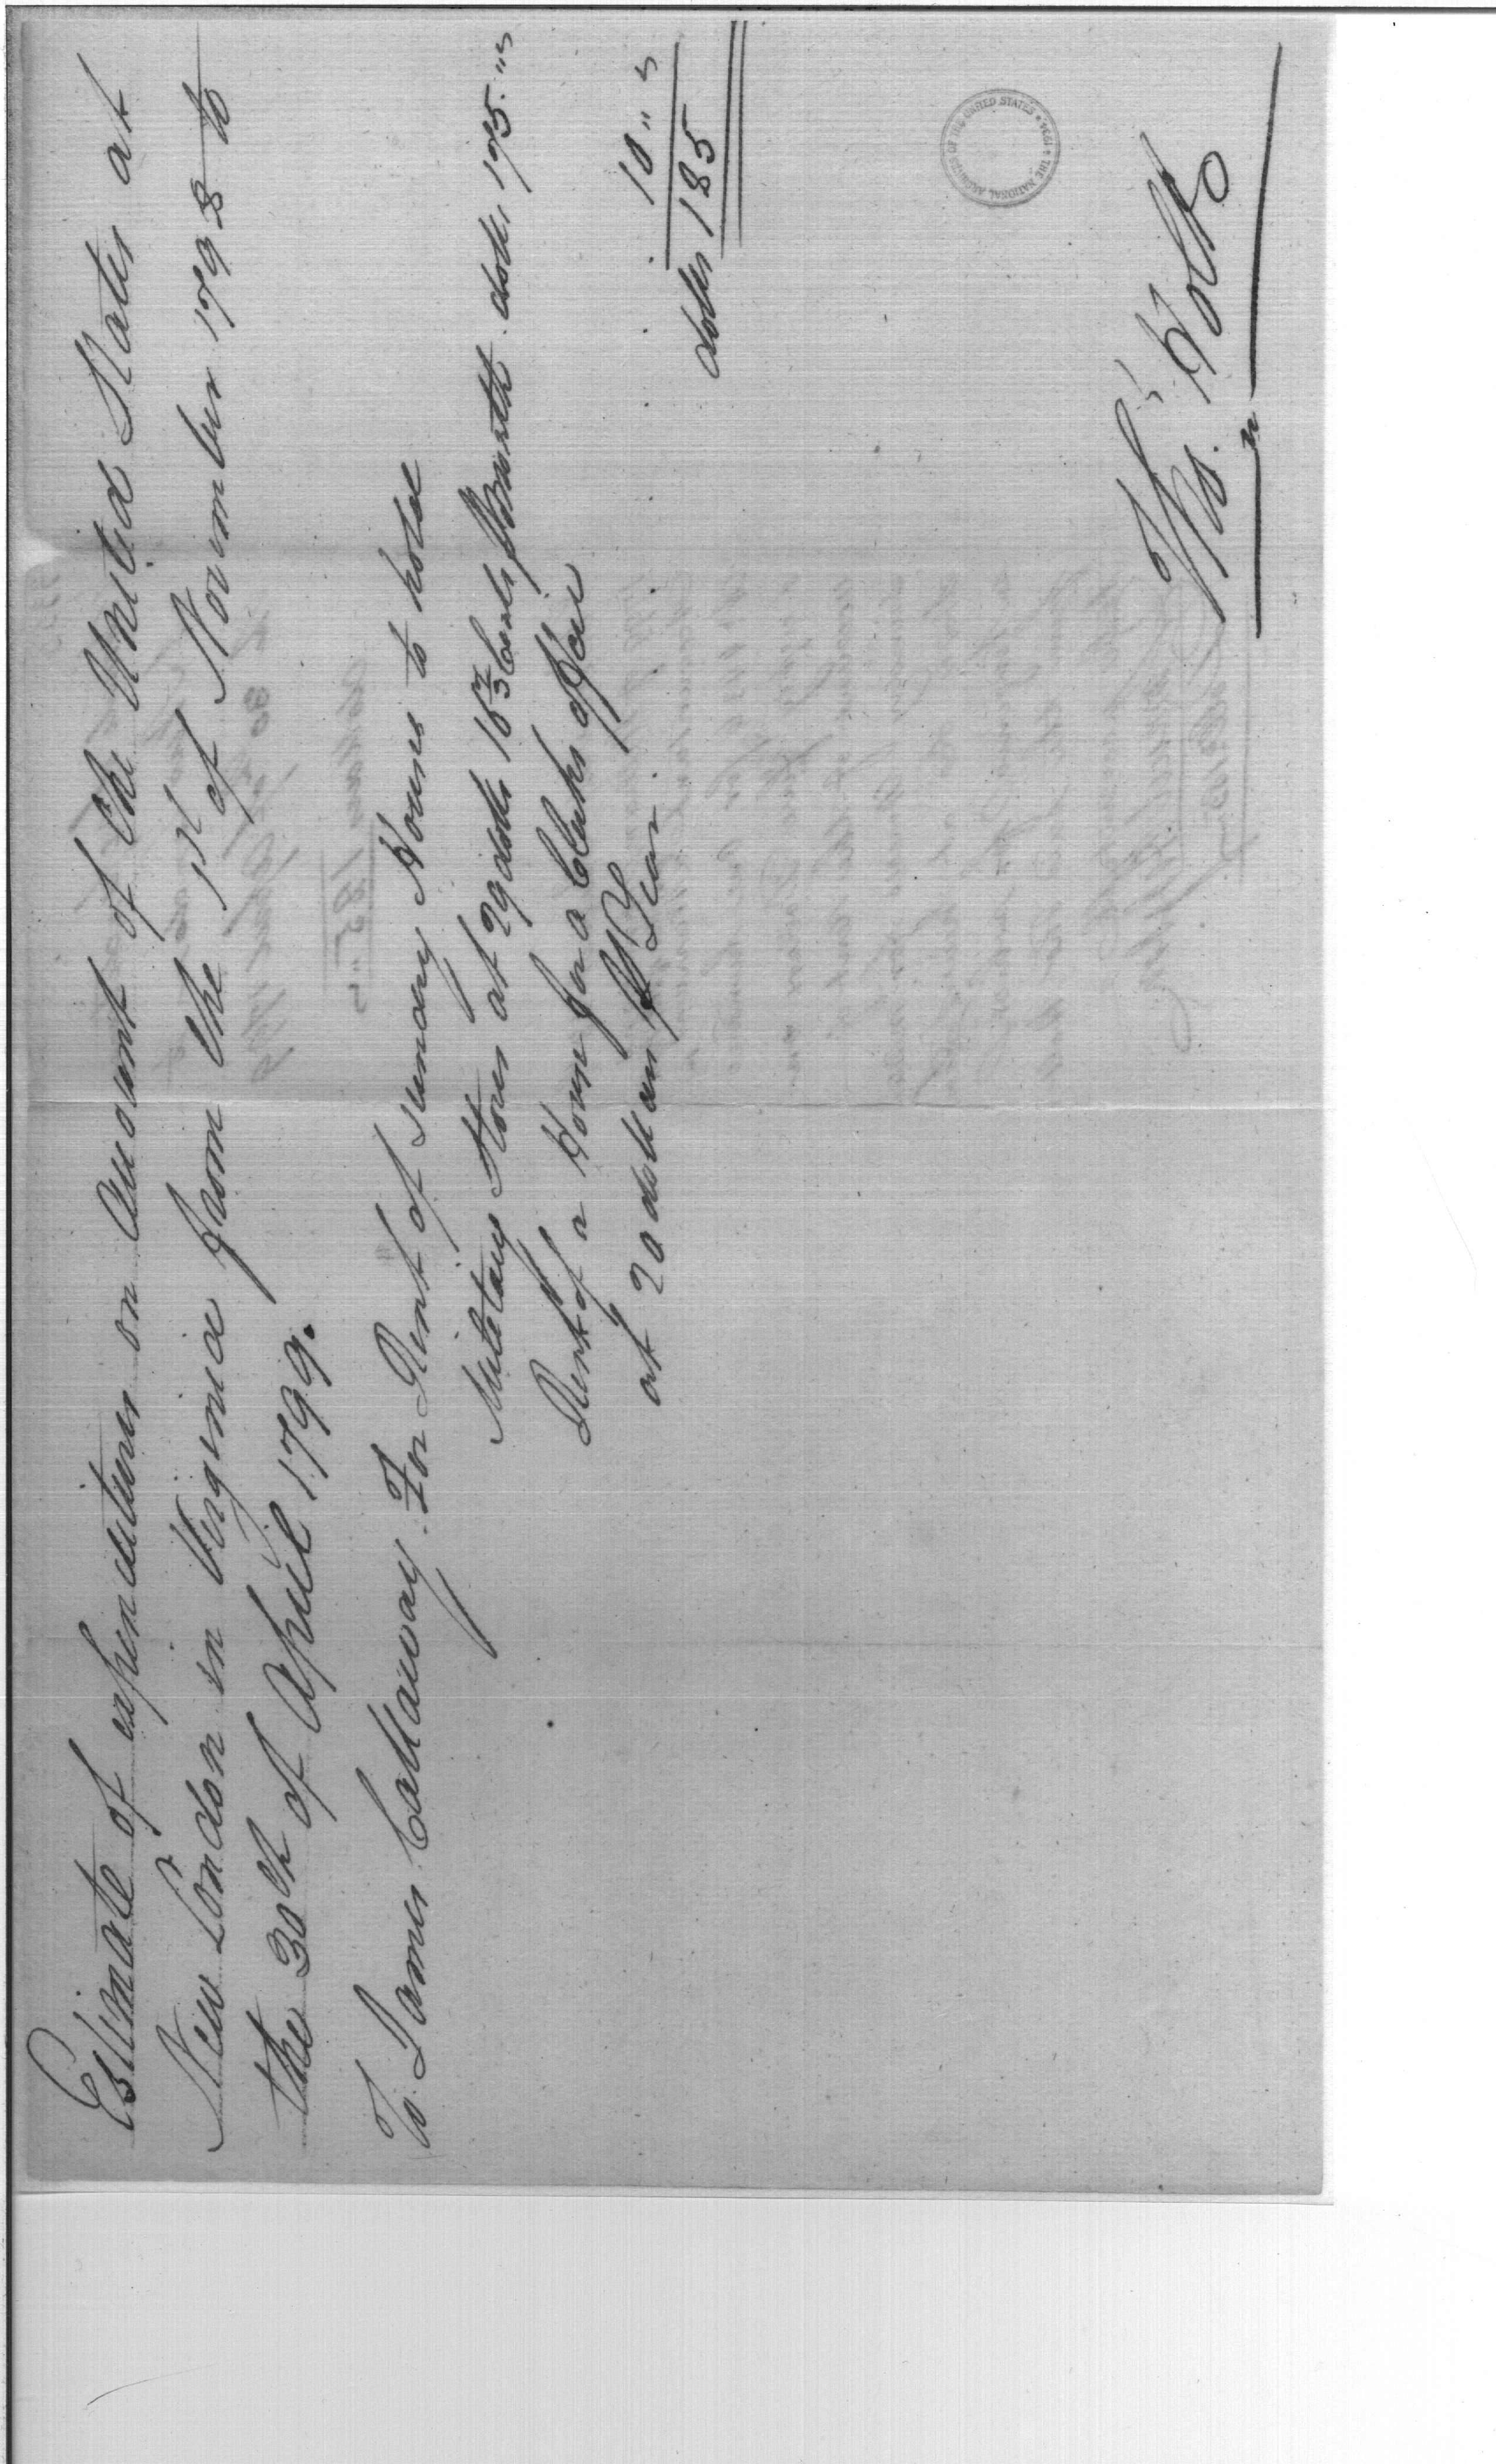 Estimate of expenditures on Account of the United States at
New London in Virginia from the 1st of November 1798 to
the 30th of April 1799.
To James Callaway. For Rent of sundry Houses to hold
Military Stores at 29 dolls 16 2/3 Cents P Month dolls 175.""
Rent of a House for a Clerks office
at 20 dollars P Year. . . . 10 ""
dolls 185
Ths. Holt
THE NATIONAL ARCHIVES OF THE UNITED STATES 1934